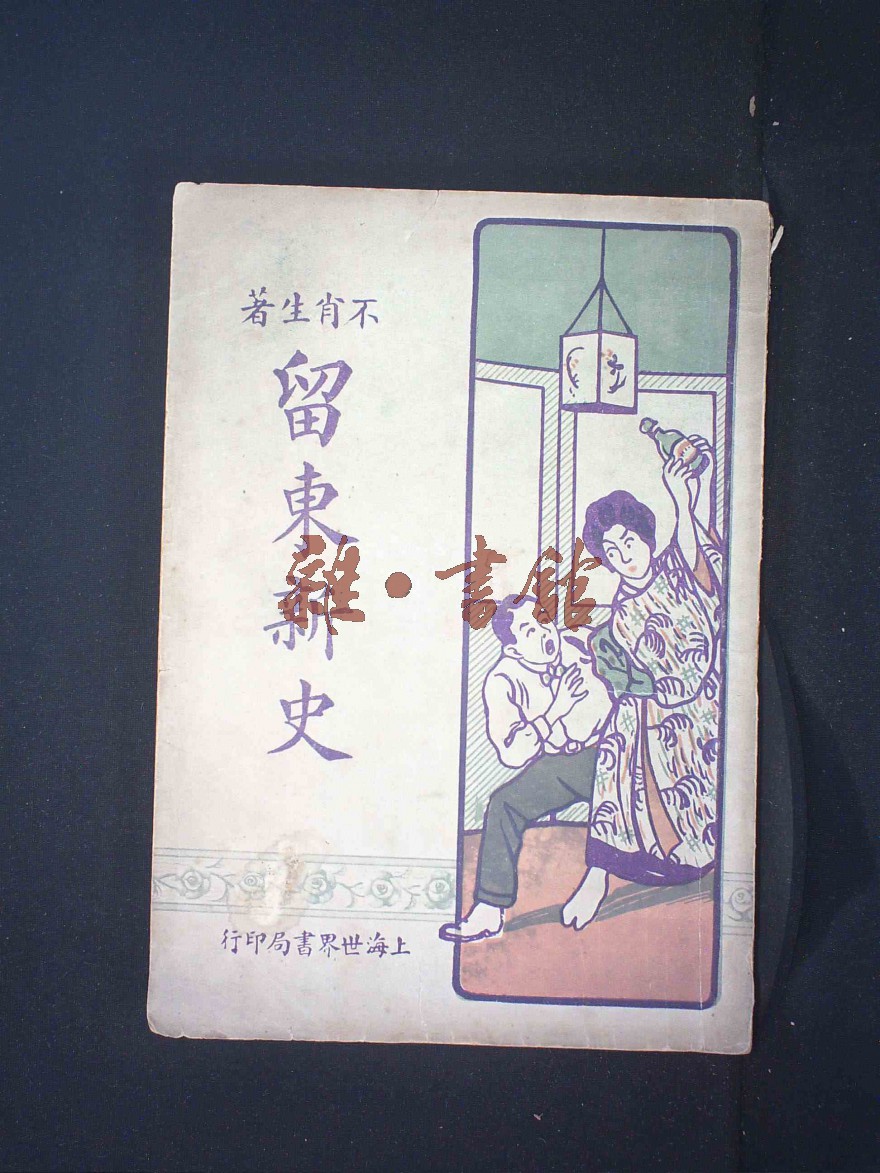 不肖生著
留東新史
雜·書館
上海世界書局印行